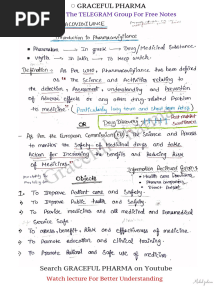 GRACEFUL PHARMA
PDF
The TELEGRAM Group For Free Notes
Introduction to Pharmacovigilance
Pharmakon → In Greek → Drug/Medicinal Substance
Vigilia → In → To keep watch.
Definition - As Per WHO, Pharmacovigilance has been defined
as "the Science and Activities relating to
the detection, Assessment, understanding and prevention
of Adverse effects or any other drug-related problem
to medicine"
OR
Drug Discovery
As Per the European Commission (EU) is the Science and Process
to monitor the Safety of Medicinal drugs and take
Action for Increasing the benefits and Reducing Risk
of Medicines.
Objects
1. To Improve Patient care and Safety.
To Improve Public health and Safety
To Provide medicine and all medical and Paramedical
Service Safe
To assess benefit, Risk and effectiveness of medicine.
To Promote education and clinical training.
To Promote Rational and Safe use of medicine
Search GRACEFUL PHARMA on Youtube
Watch lecture For Better Understanding